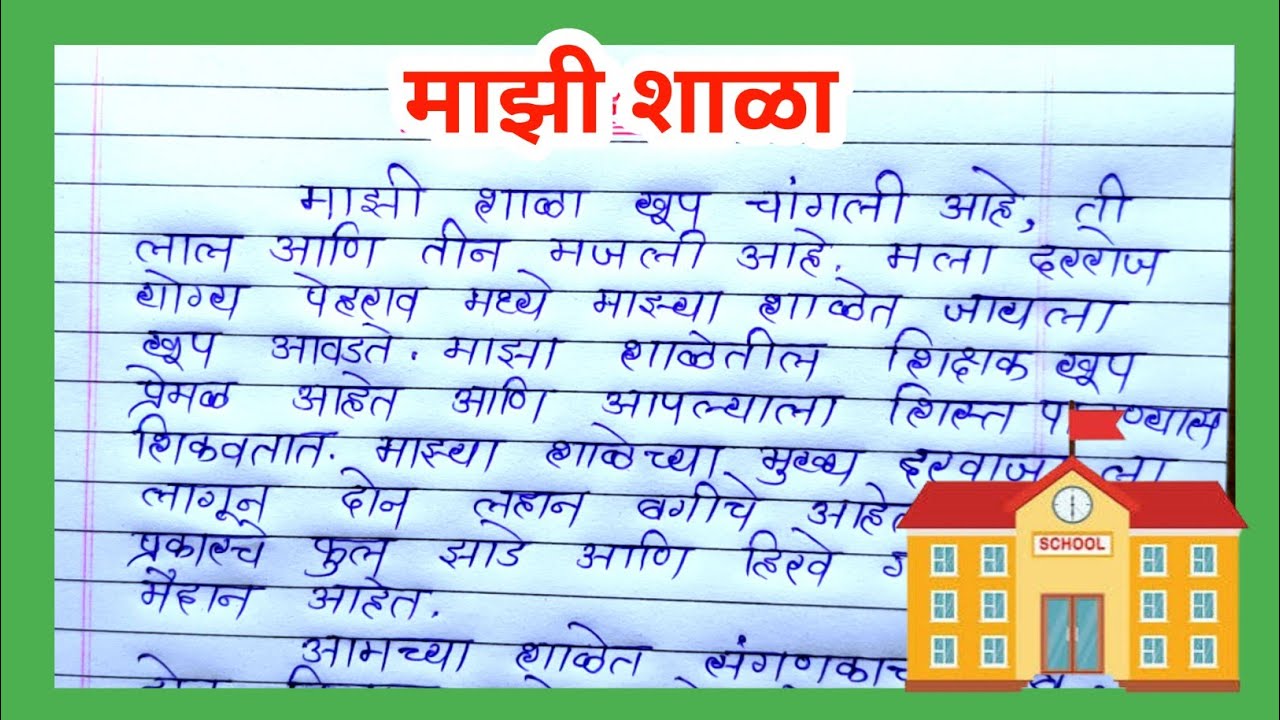 माझी शाळा
माझी शाळा खूप चांगली आहे, ती
लाल आणि तीन मजली आहे. मला दररोज
योग्य पेहराव मध्ये माझ्या शाळेत जायला
खूप आवडते. माझा शाळेतील शिक्षक खूप
प्रेमळ आहेत आणि आपल्याला शिस्त
शिकवतात. माझ्या शाळेच्या मुख्य
लागून दोन लहान बगीचे
प्रकारचे फुल झाडे आणि हिरवे
मैदान आहेत.
आमच्या शाळेत
SCHOOL